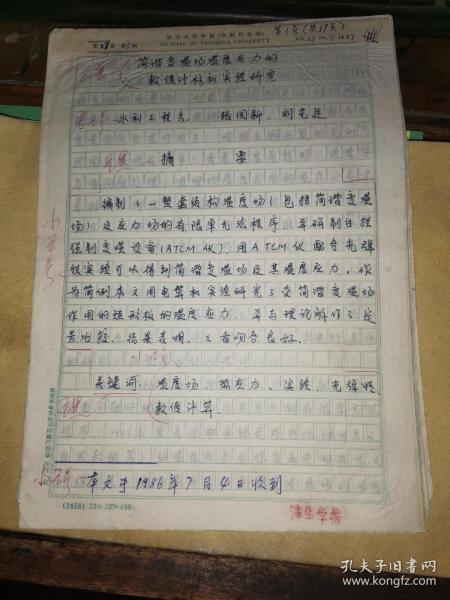 第27卷 第5期
清华大学学报(自然科学版)
JOURNAL OF TSINGHUA UNIVERSITY
第1页(共19页)
Vol.27 No.5 1987
简谐变温场温度应力的
数值计算和实验研究
水利工程系 张国新、刘光廷
摘 要
编制了一整套结构温度场(包括简谐变温
场)及应力场的有限单元法程序,并研制自控
强制变温设备(ATCM仪)。用ATCM仪配合光弹
性实验可以得到简谐变温场及其温度应力。作
为简例本文用电算和实验研究了受简谐变温场
作用的矩形板的温度应力,并与理论解作了定
量比较,结果表明,三者吻合良好。
关键词 温度场、温度应力、实验、光弹性、
数值计算.
本文于1986年7月4日收到
(2456) 20×20=400
清华学报
孔夫子旧书网
www.kongfz.com